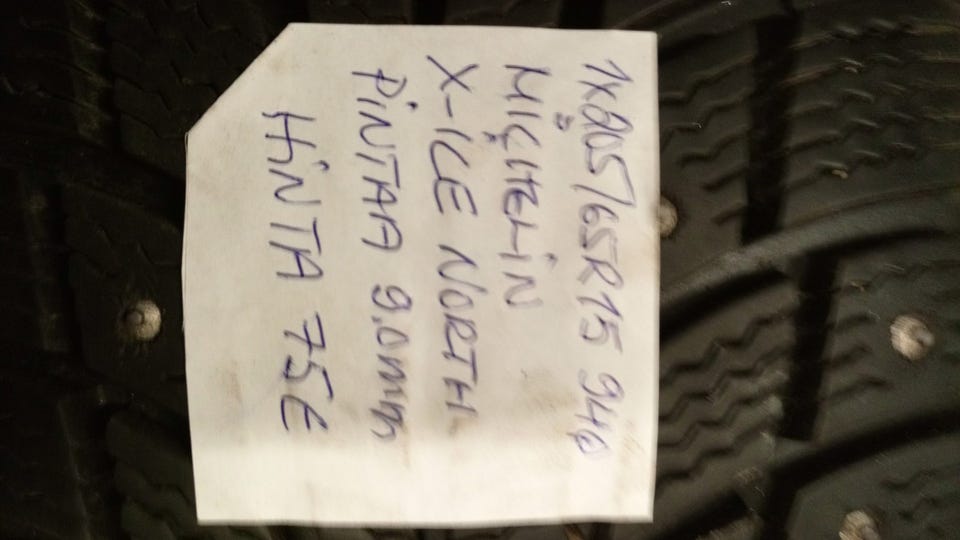 1X205/65R15 94Q
MICHELIN
X-ICE NORTH
PINTAA 9.0mm
HINTA 75€